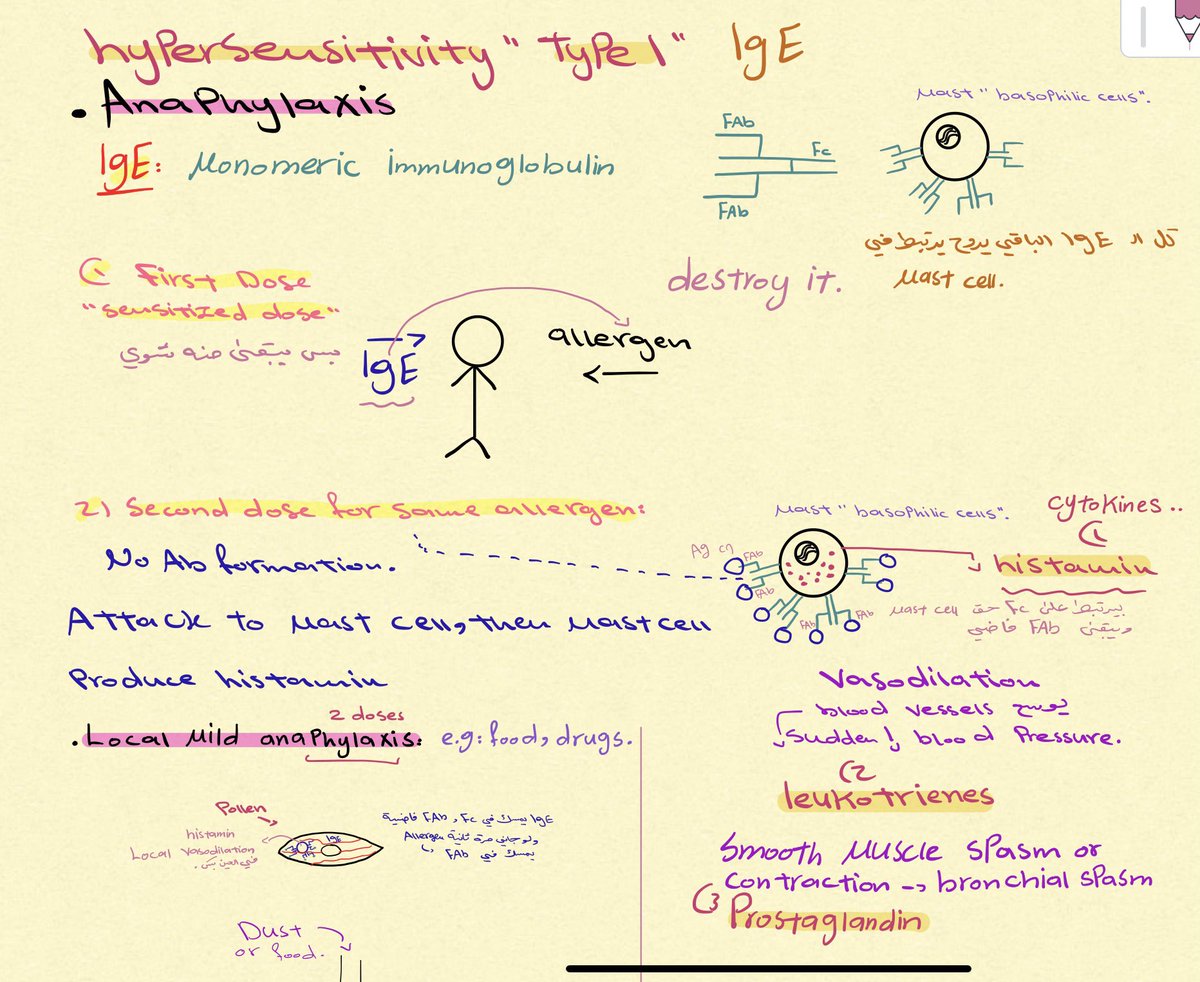 hypersensitivity "Type 1" IgE
• Anaphylaxis
IgE: Monomeric immunoglobulin
FAb
Fc
FAb
Mast "basophilic cells".
كل الـ IgE الباقي يروح يرتبط في
Mast cell.
1) First Dose
"sensitized dose"
بس يتبقى منه شوي
IgE
allergen
destroy it.
2) Second dose for same allergen:
No Ab formation.
Attack to Mast cell, then Mast cell
Produce histamin
Mast "basophilic cells".
Ag
FAb
FAb
FAb
FAb
cytokines..
1)
histamin
يرتبط على Fc حق Mast cell
ويتبقى FAb فاضي
Vasodilation
blood vessels يوسع
Sudden ↓ blood Pressure.
2)
leukotrienes
Smooth Muscle Spasm or
Contraction → bronchial spasm
3) Prostaglandin
2 doses
. Local Mild anaphylaxis: e.g: food, drugs.
Pollen
histamin
Local Vasodilation
في العين بس.
IgE
IgE يمسك في Fc, FAb فاضية
ولو جاني مرة ثانية Allergen
يمسك في FAb
Dust
or food.